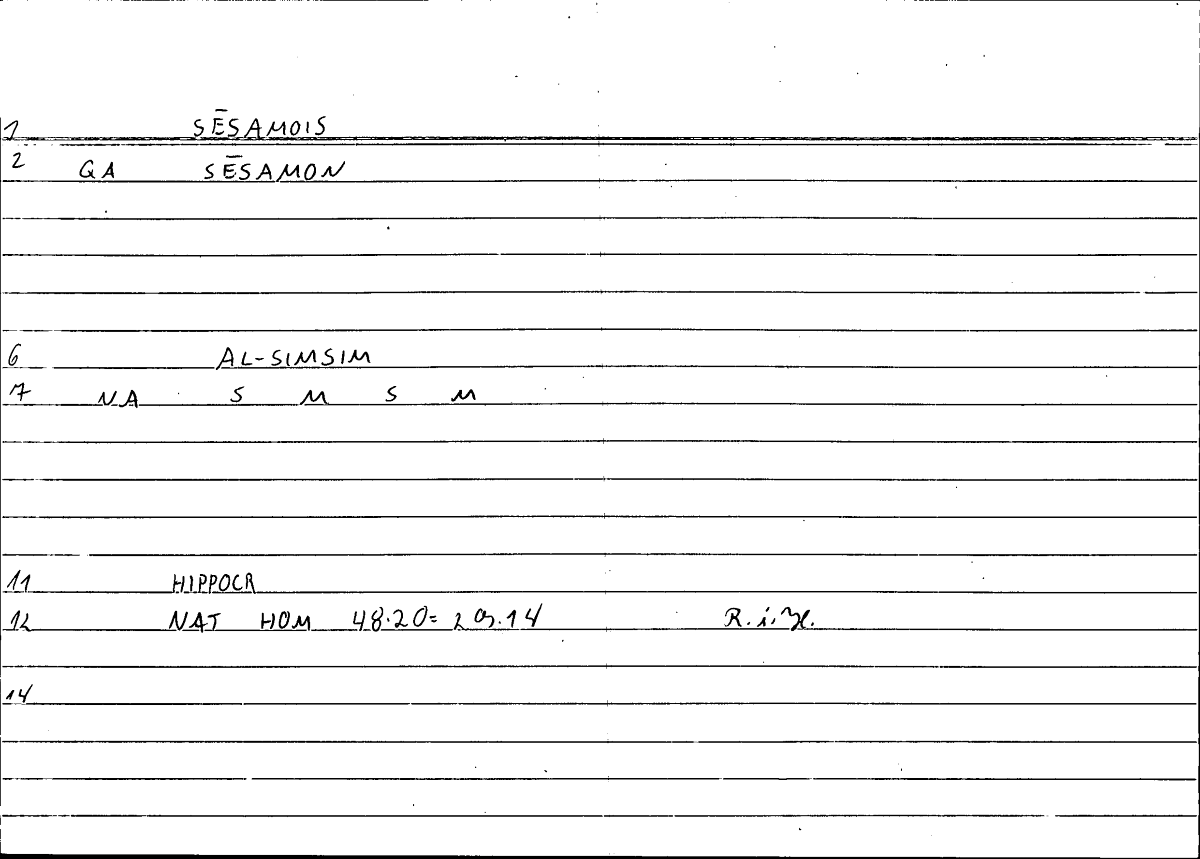 1 SĒSAMOIS
2 GA SĒSAMON
6 AL-SIMSIM
7 NA S M S M
11 HIPPOCR
12 NAT HOM 48.20= 29.14
14